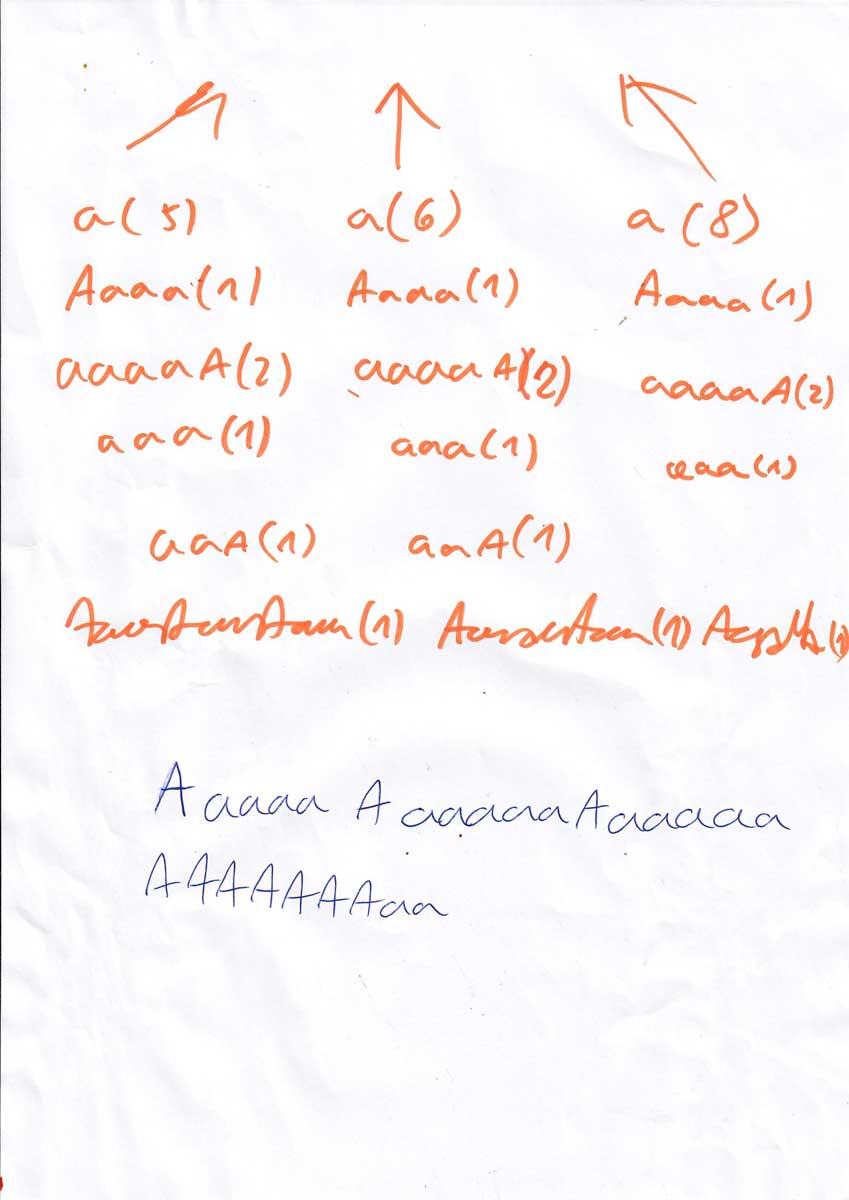 a(5) a(6) a(8)
Aaaa(1) Aaaa(1) Aaaa(1)
aaaaA(2) aaaaA(2) aaaaA(2)
aaa(1) aaa(1) aaa(1)
aaA(1) aaA(1)
(1) (1) (1)
Aaaaa AaaaaaaAaaaaaa
AAAAAAAAaa